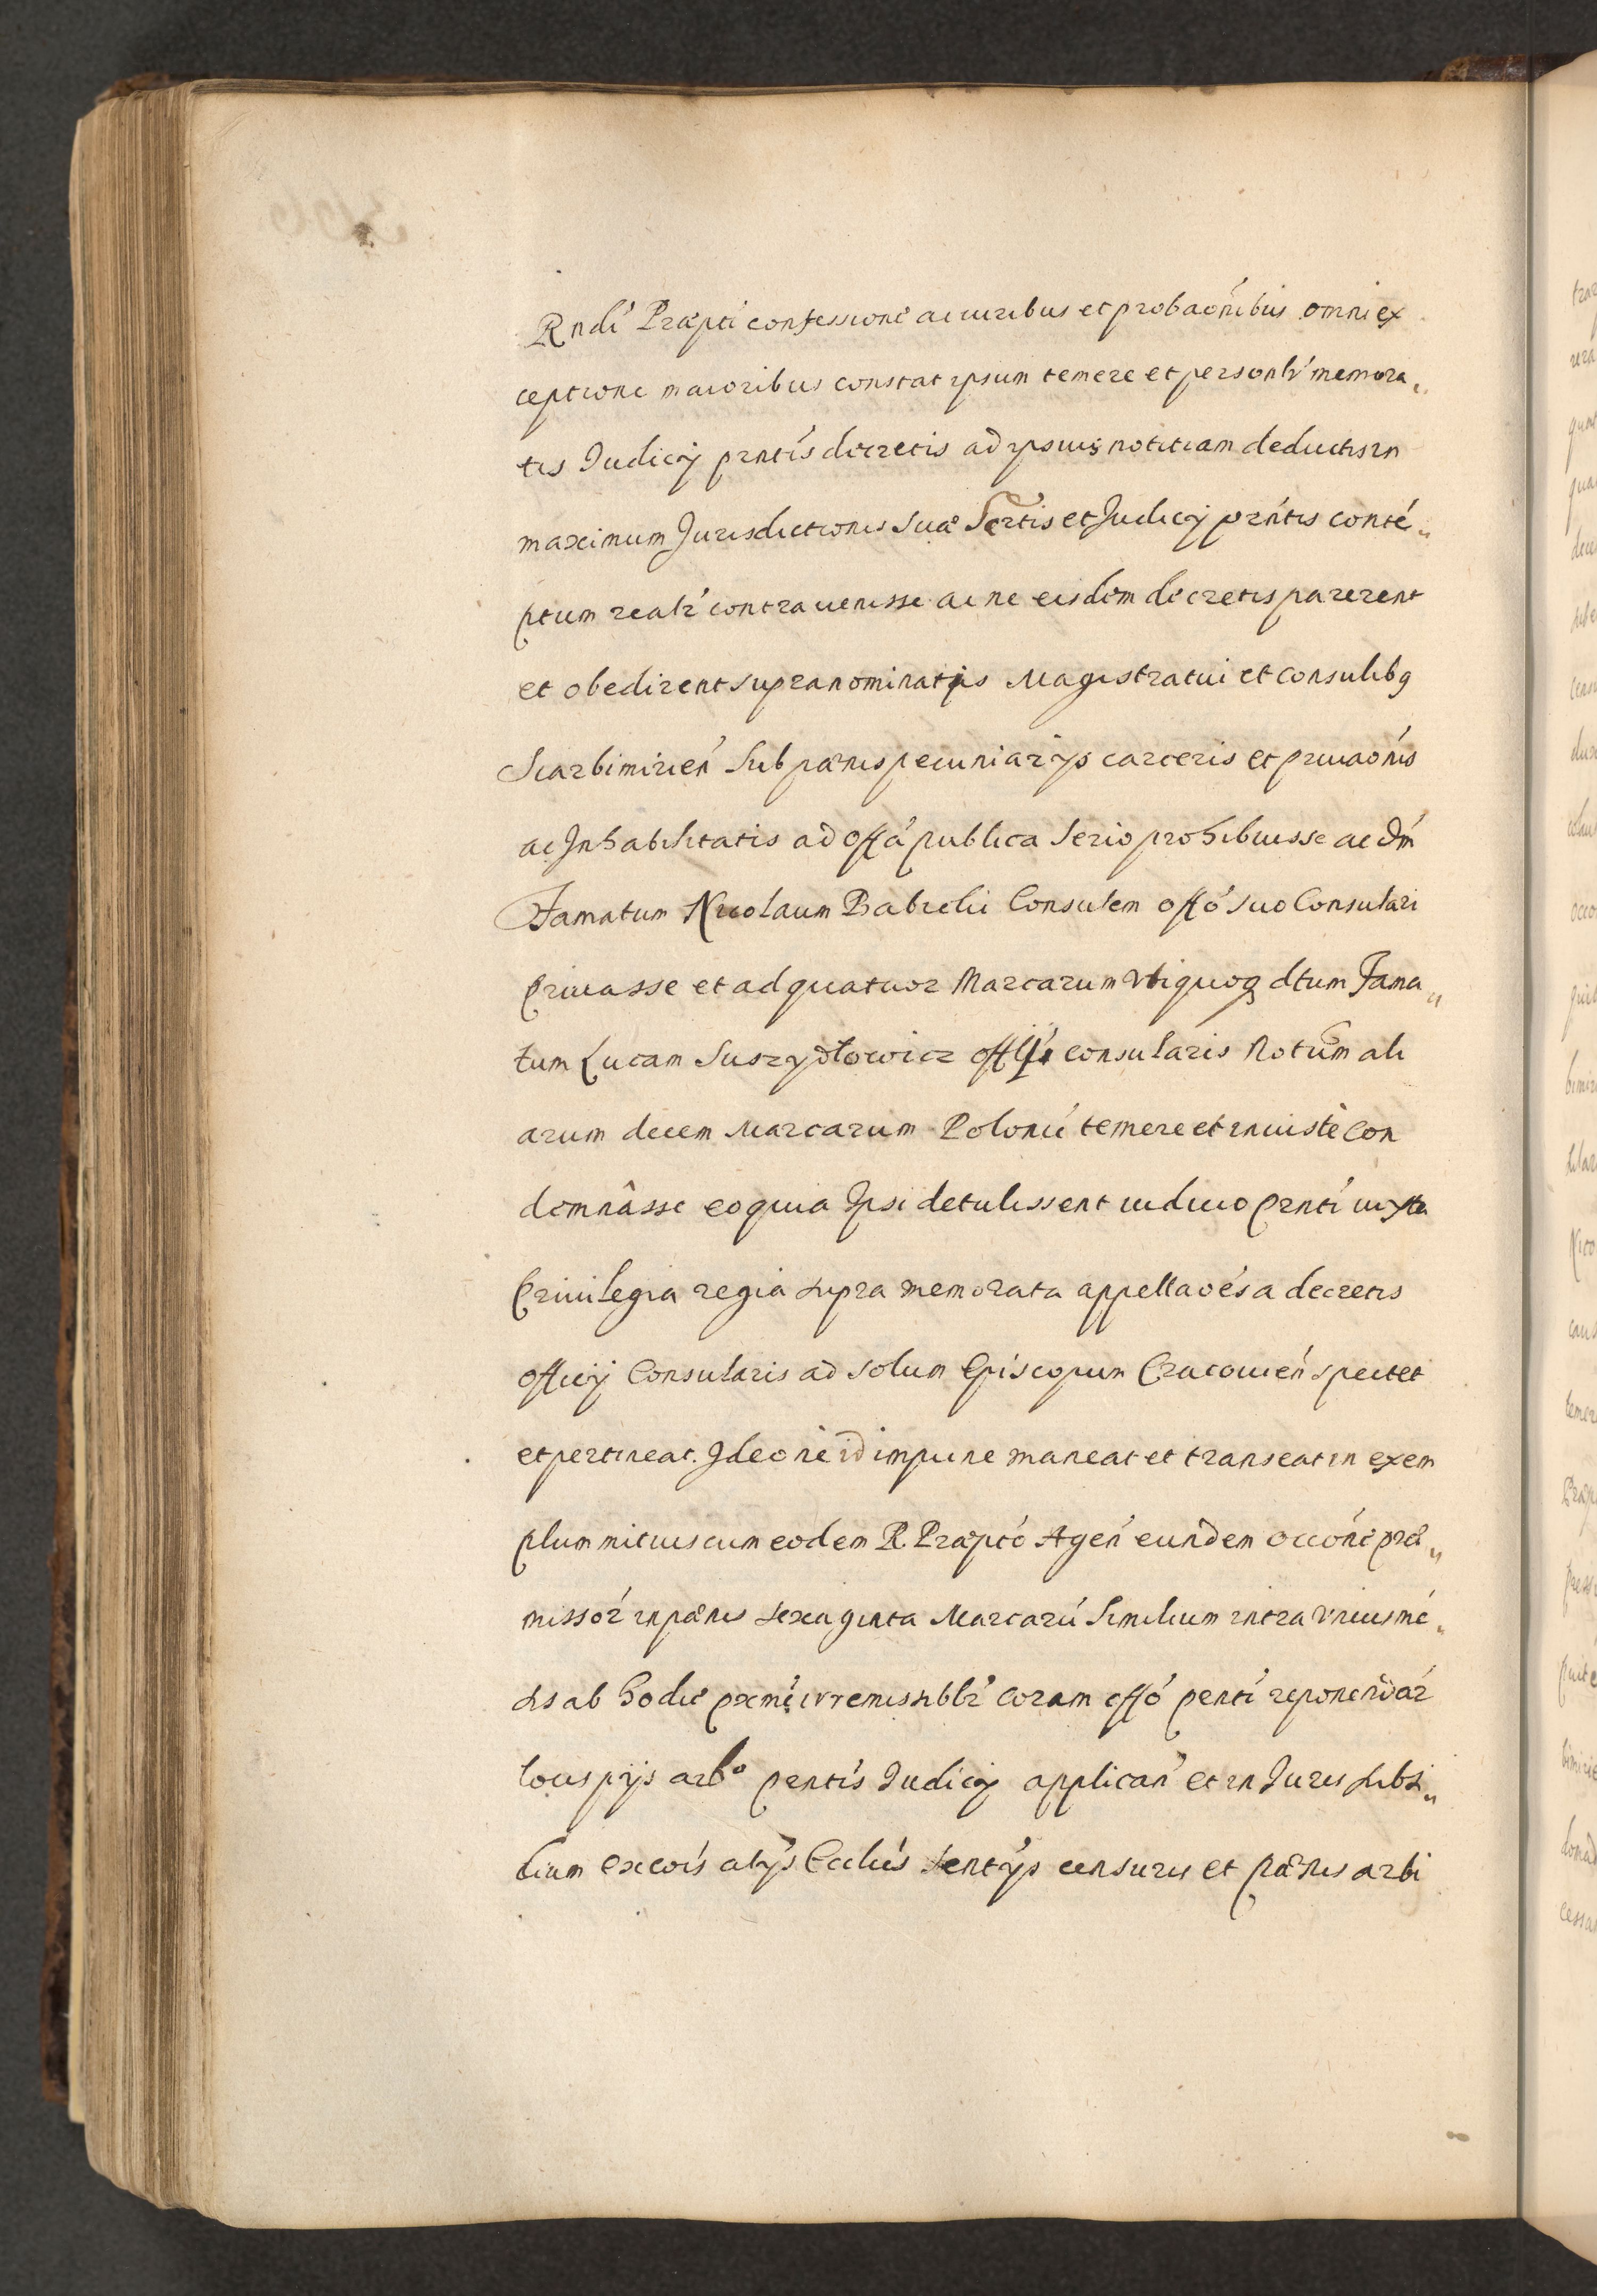 Rndi Præpti confessione ac iuribus et probaonibus omni ex
ceptione maioribus constat ipsum temere et personlr memora„
tis Iudicij pntis decretis ad ipsius notitiam deductis in
maximum Jurisdictionis Suæ Sertis et Judicij prntis conte„
ptum realr contrauenisse ac ne eisdem decretis parerent
et obedirent supranominatis Magistratui et consulibq
Scarbimirien Sub pænis pecuniarijs carceris et priuaonis
ac Inhabilitatis ad offa publica Serio prohibuisse ac dm
Famatum Nicolaum Babielu Consulem offo suo Consulari
Priuasse et ad quatuor Marcarum Vti quoq dtum Fama„
tum Lucam Suszydłowicz consularis Notum ali
arum decem Marcarum Polonic temere et iniuste Con
demnâsse eo quia Ipsi detulissent iudicio prnti iuxta
Priuilegia regia supra memorata appellaoes a decretis
officij Consularis ad solum Episcopum Cracouien spectet
et pertineat. Ideo ne id impune maneat et transeat in exem
plum mitius cum eodem R. Præpto Agen eundem occone præ„
missor in pænis sexaginta Marcaru Similium intra vnius me„
sis ab hodie pxme irremissibblr coram offo prnti reponendar
locis pijs arbo prntis Iudicij applican et in Juris subsi„
dium excois alijs Ecclies sentijs censuris et pænis arbi